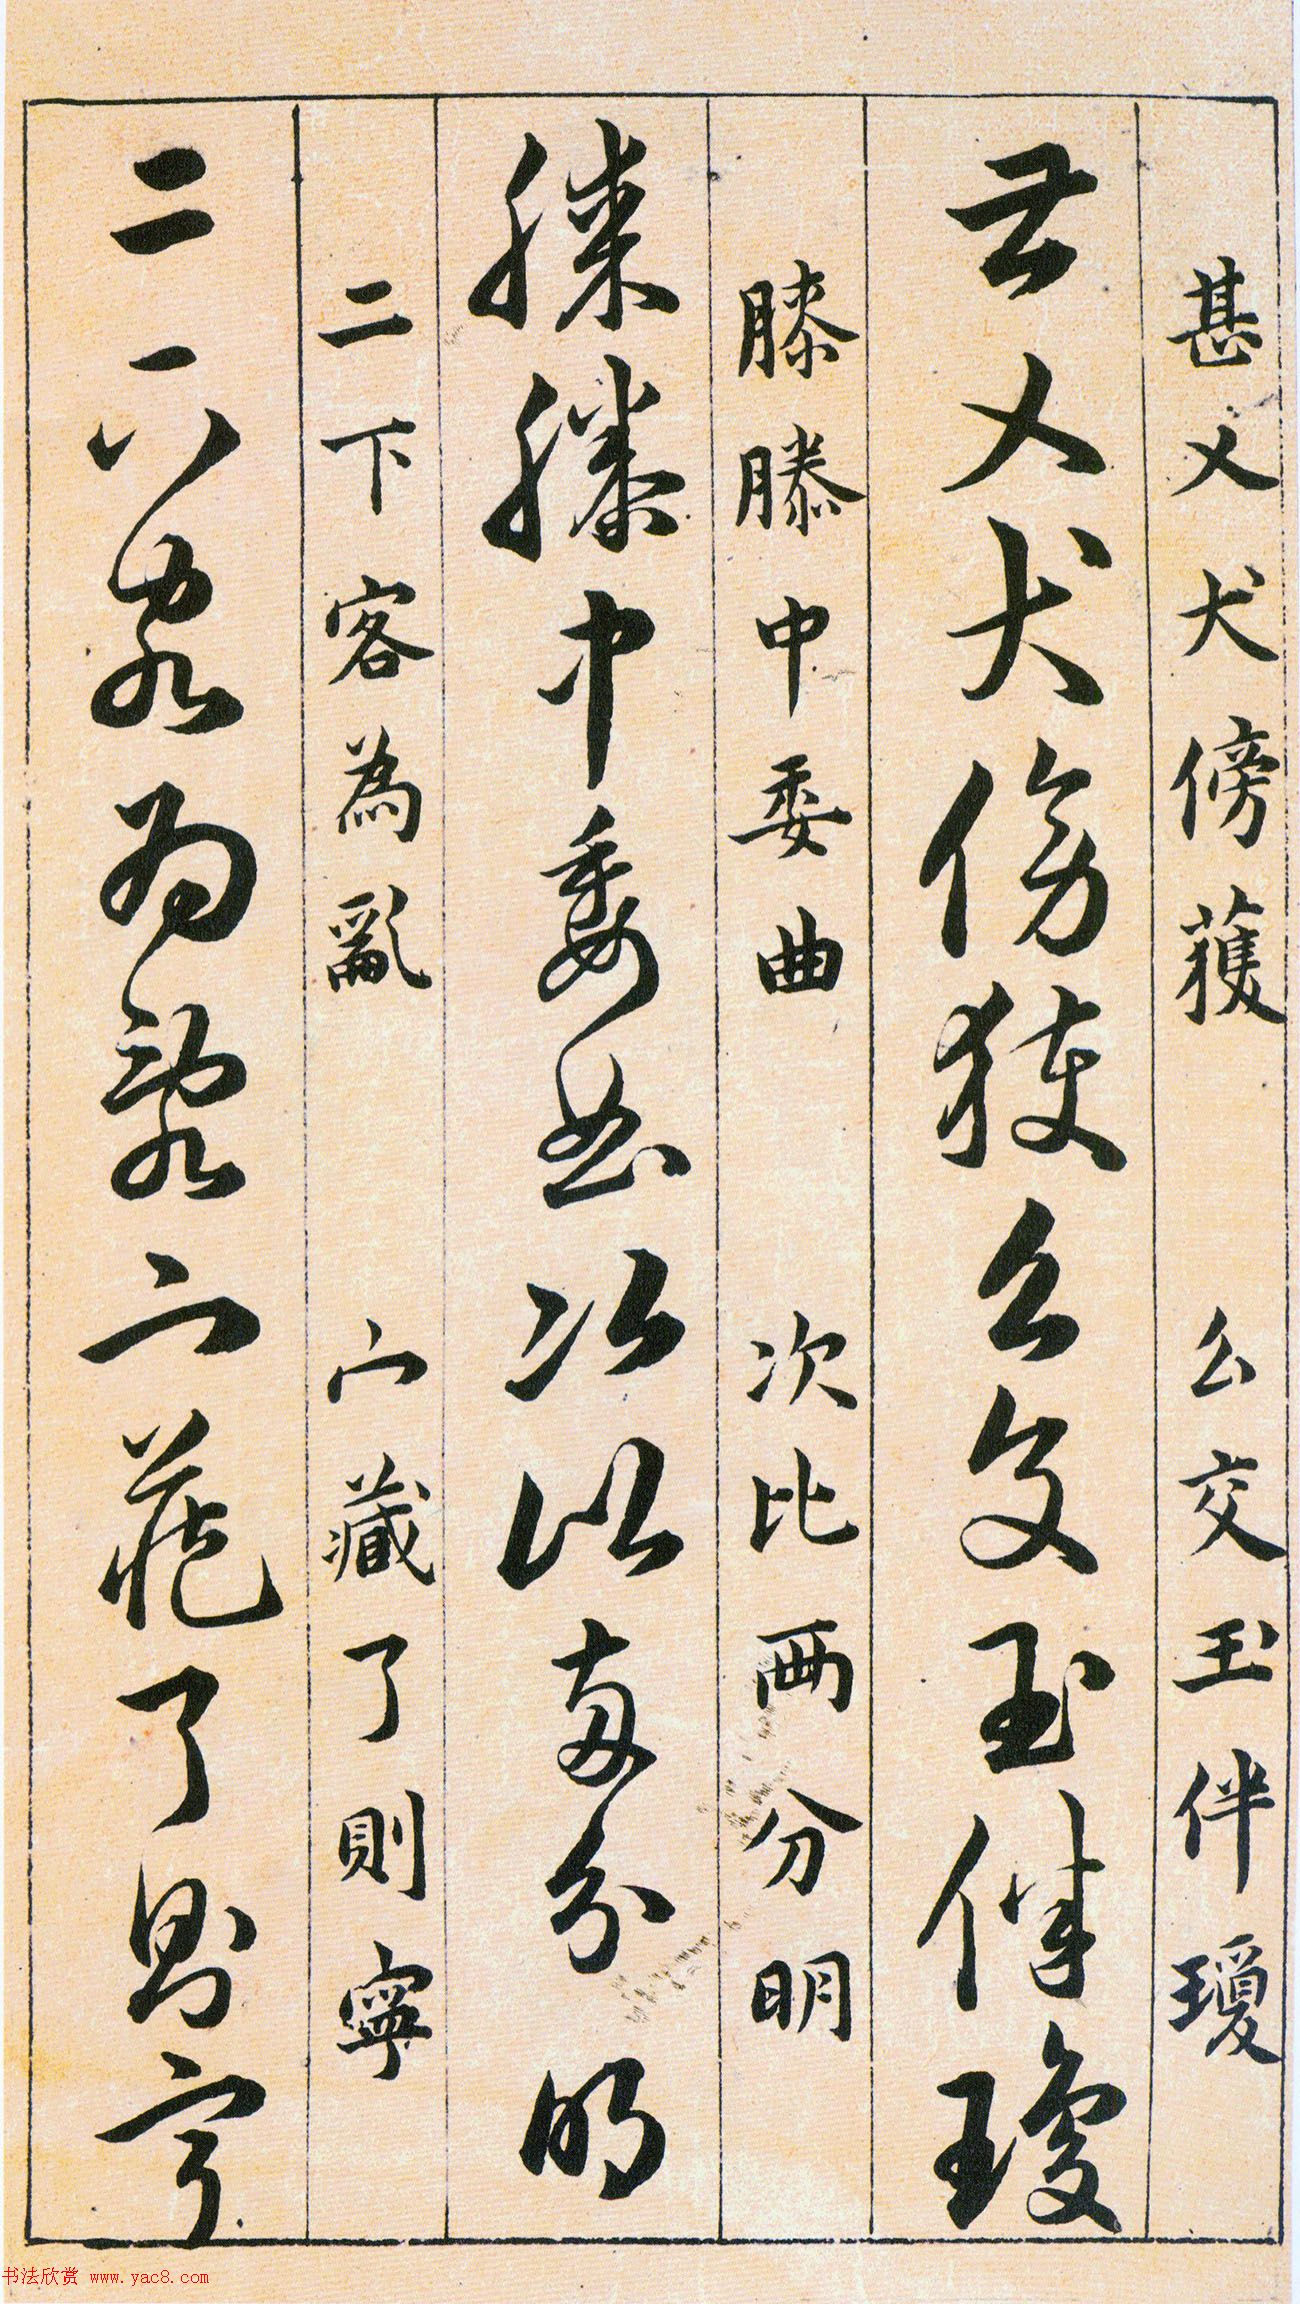 甚乂犬傍獲 么交玉伴瓊
甚乂犬傍獲么交玉伴瓊
膝滕中委曲 次比兩分明
膝滕中委曲次比兩分明
二下客為亂 宀藏了則寧
二下客為亂宀藏了則寧
书法欣赏 www.yac8.com